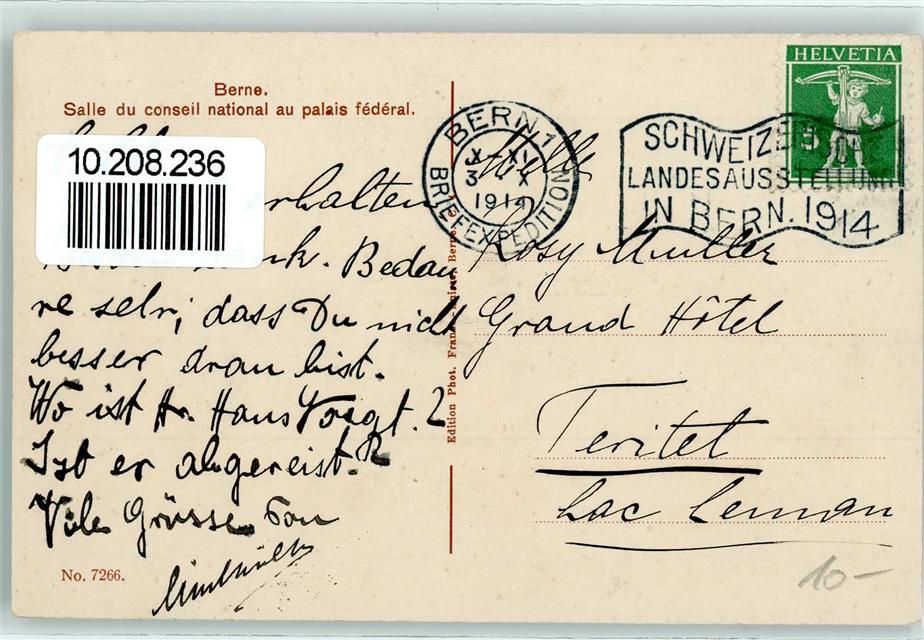 Berne.
Salle du conseil national au palais fédéral.
10.208.236
rhalten
k. Bedau
re sehr, dass Du nicht
besser dran bist.
Wo ist Hr. Hans Voegt.?
Ist er abgereist?
Viele Grüsse von
No. 7266.
Edition Phot. Berne.
BERN 1
X XI
3 X
1914
BRIEFEXPEDITION
SCHWEIZER
LANDESAUSSTELLUNG
IN BERN. 1914
HELVETIA
5
Melle
Rosy Muller
Grand Hôtel
Teritet
Lac Leman
10-